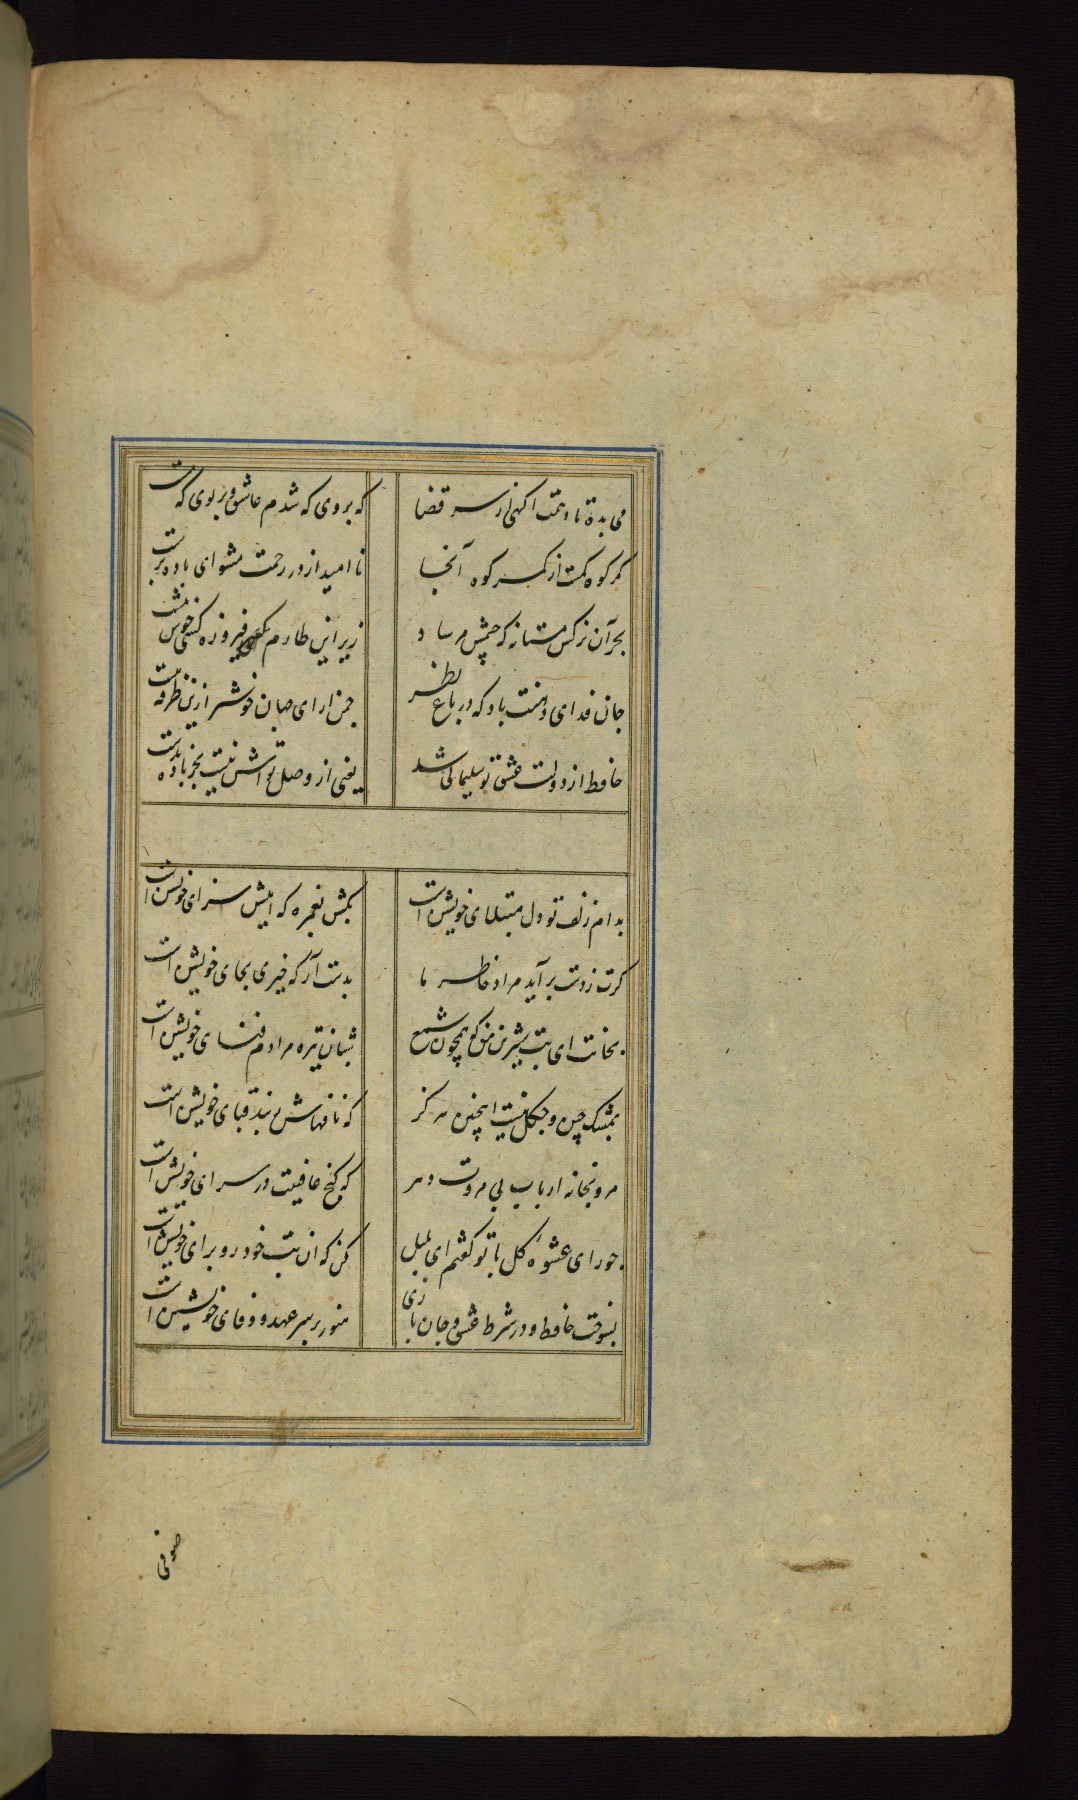 می بده تا دهمت اکهی از سر قضا که بروی که شدم عاشق و بر بوی که مست
کمر کوه کمست از کمر کوه آنجا نا امید از در رحمت مشو ای باده پرست
بجز آن نرکس مستانه که چشمش مرساد زیر این طارم فیروزه کسی خوش ننشست
جان فدای دهنت باد که در باغ نظر چمن ارای جهان خوشتر ازین غنچه نبست
حافظ از دولت عشق تو سلیمانی شد یعنی از وصل تواش نیست بجز باد بدست
بدام زلف تو دل مبتلای خویشتن است بکش بغمزه که اینش سزای خویشتن است
کرت زدست برآید مراد خاطر ما بدست آر که خیری بجای خویشتن است
بجانت ای بت شیرین من که همچون شمع شبان تیره مرادم فنای خویشتن است
بمشک چین و چکل نیست اینچنین هرکز که نافهاش ز بند قبای خویشتن است
مرو بخانه ارباب بی مروت دهر که کنج عافیت در سرای خویشتن است
چو رای عشوه کل با تو کفتم ای بلبل مکن که ان بت خودرو برای خویشتن است
بسوخت حافظ و در شرط عشق و جان بازی هنوز بر سر عهد و وفای خویشتن است
صوفی